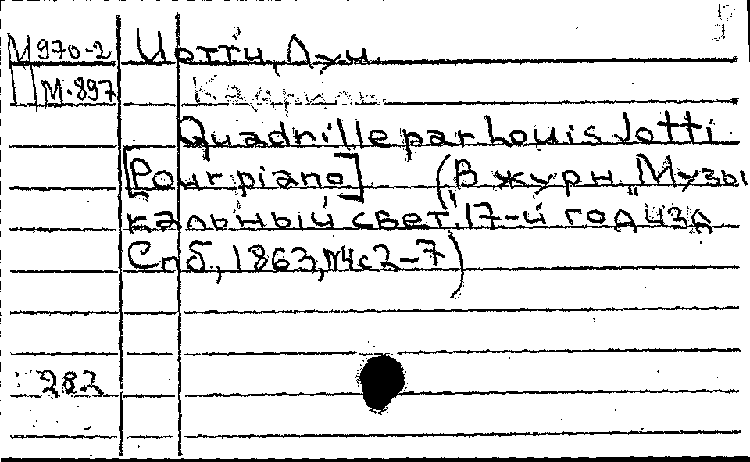 М970-2 Иотти, Луи.
М.897 Кадриль
Quadrille par Louis Jotti.
[Pour piano] (В журн. "Музы
кальный свет". 17-й год изд
Спб, 1863, №4 с 2-7)
282